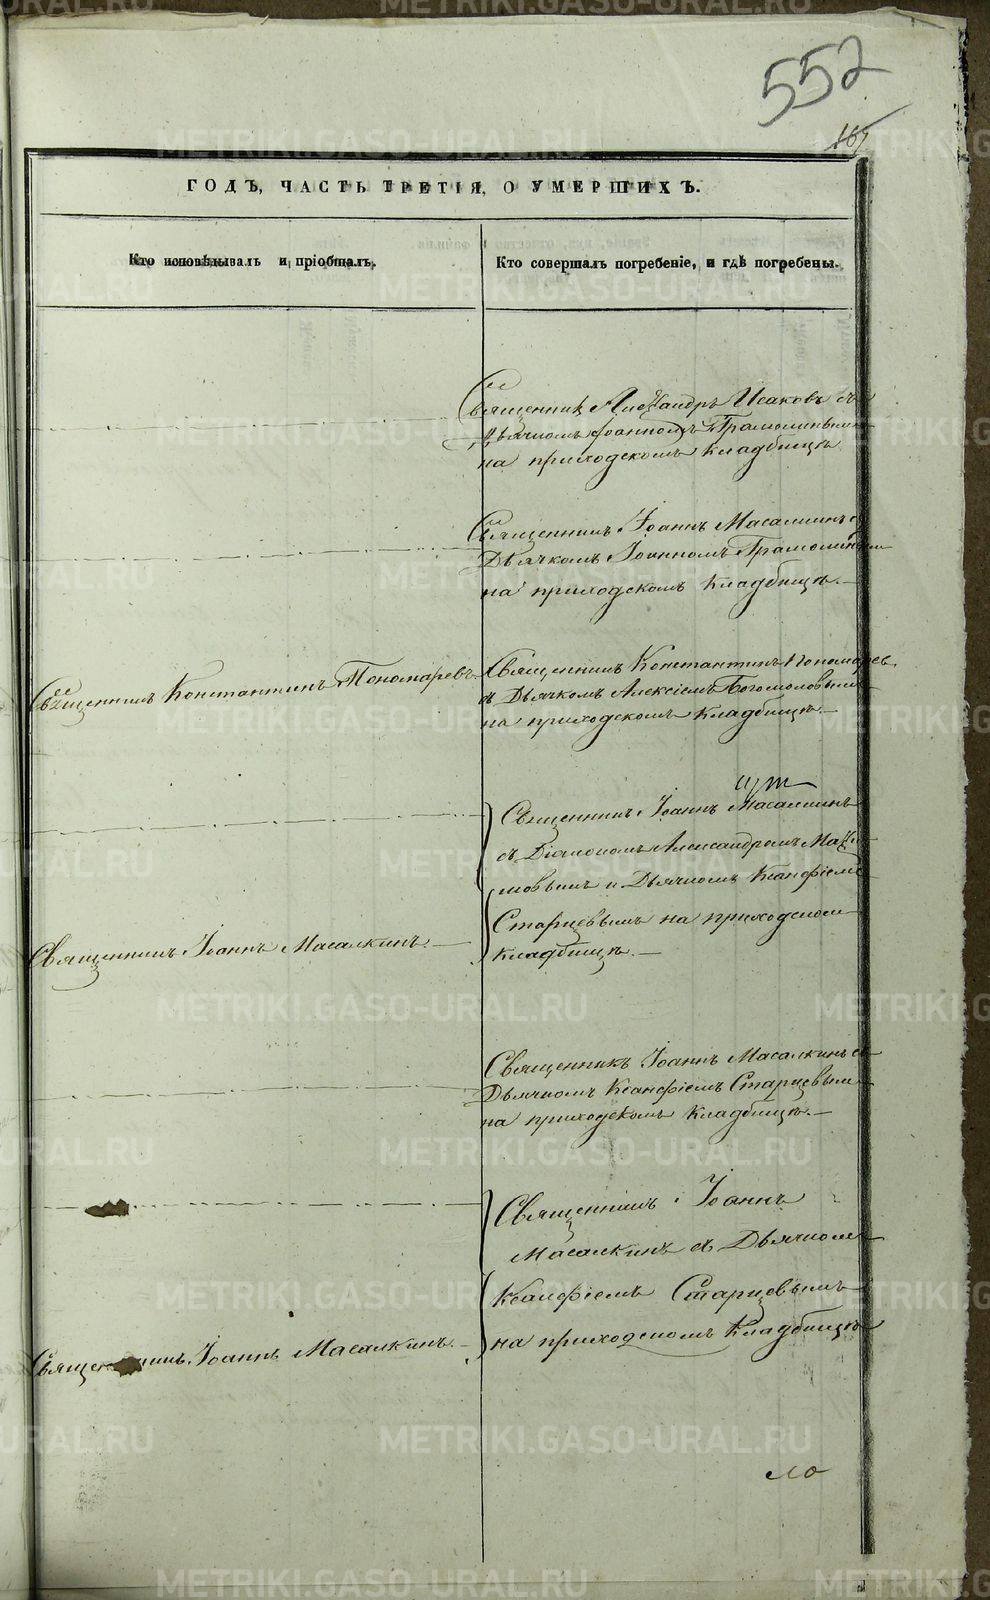 552
167
ГОДЪ, ЧАСТЬ ТРЕТІЯ, О УМЕРШИХЪ.
Кто исповѣдывалъ и пріобщалъ.
Кто совершалъ погребеніе, и гдѣ погребены.
Священникъ Александръ Исаковъ съ
Дьячкомъ Іоанномъ
на приходскомъ кладбищѣ
Священникъ Іоаннъ Масалкинъ съ
Дьячкомъ Іоанномъ
на приходскомъ кладбищѣ.—
Священникъ Константинъ Пономаревъ
Священникъ Константинъ Пономаревъ
съ Дьячкомъ Алексіемъ Богомоловымъ
на приходскомъ кладбищѣ.—
Священникъ Іоаннъ Масалкинъ
съ Діакономъ Александромъ
и Дьячкомъ Ксанфіемъ
Старцевымъ на приходскомъ
кладбищѣ.—
Священникъ Іоаннъ Масалкинъ.—
Священникъ Іоаннъ Масалкинъ съ
Дьячкомъ Ксанфіемъ Старцевымъ
на приходскомъ кладбищѣ.—
Священникъ Іоаннъ
Масалкинъ съ Дьячкомъ
Ксанфіемъ Старцевымъ
на приходскомъ кладбищѣ
Священникъ Іоаннъ Масалкинъ.—
METRIKI.GASO-URAL.RU